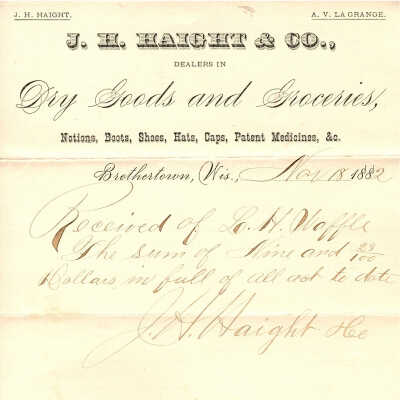 J. H. HAIGHT. A. V. LA GRANGE.
J. H. HAIGHT & CO.,
DEALERS IN
Dry Goods and Groceries,
Notions, Boots, Shoes, Hats, Caps, Patent Medicines, &c.
Brothertown, Wis., Nov 18 1882
Received of L. H. Waffle
The sum of Nine and 29/100
Dollars in full of all act to date
J. H. Haight &Co